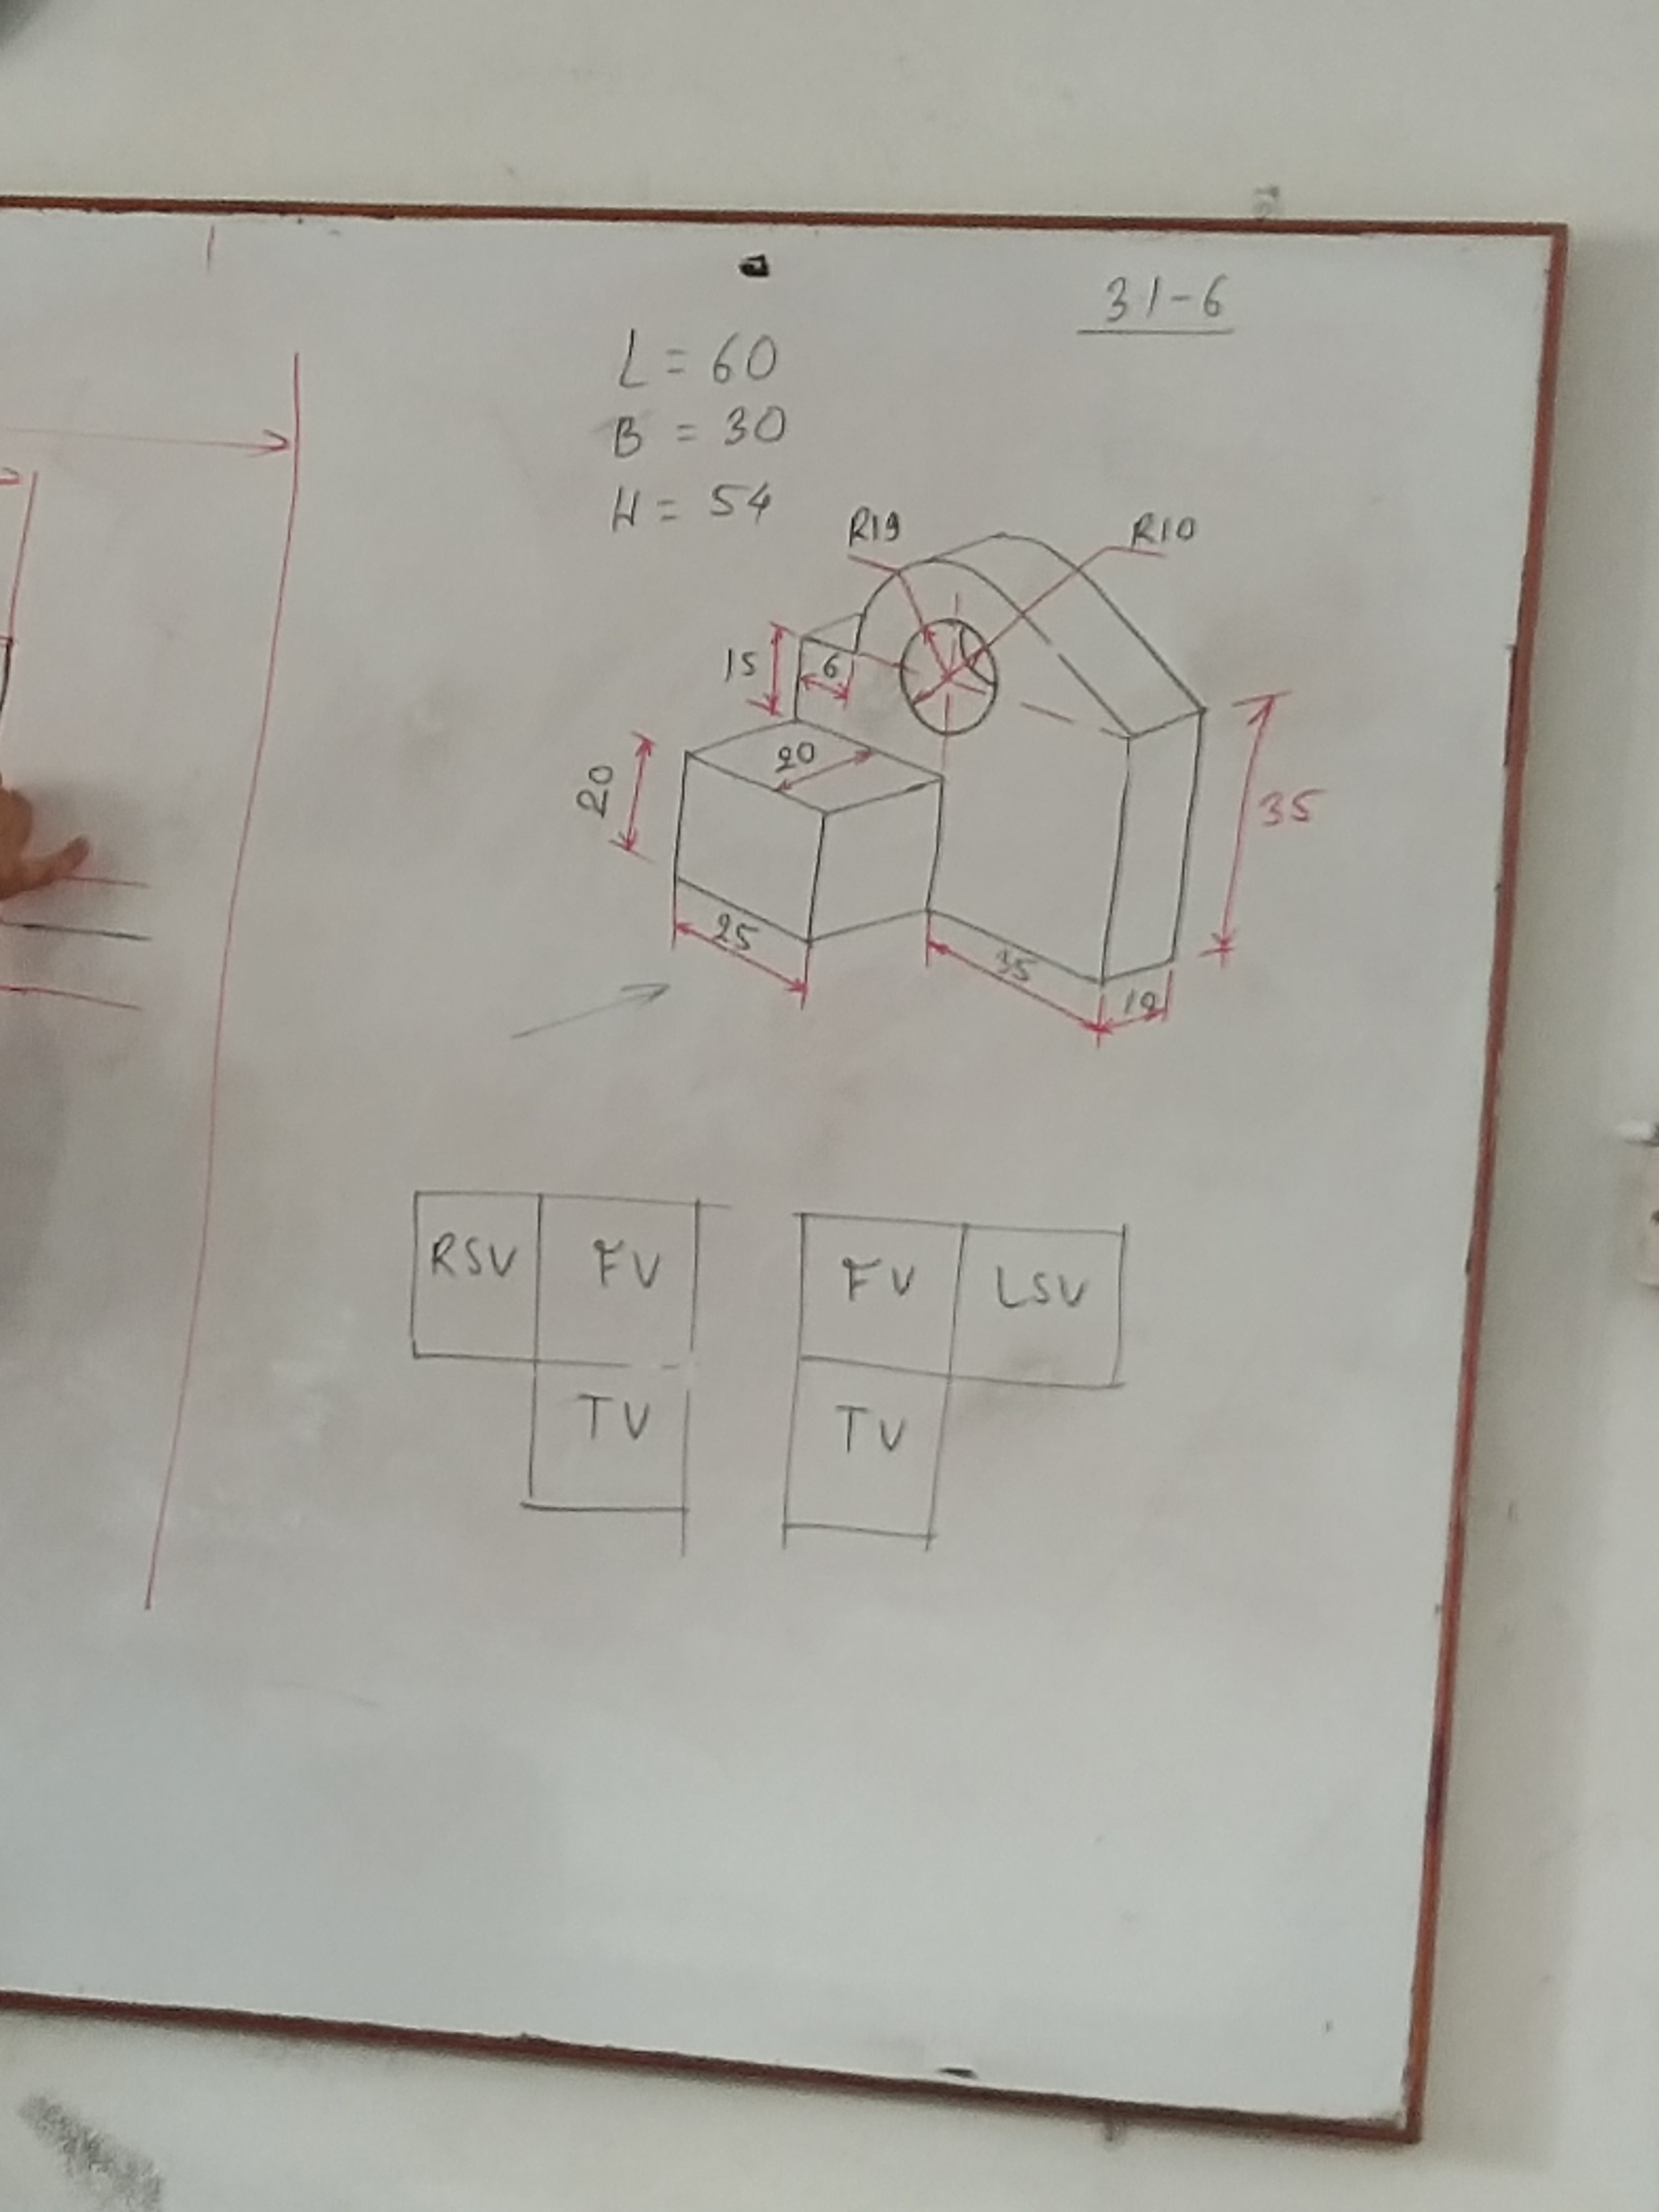 31-6
L = 60
B = 30
H = 54
R19
R10
15
6
20
20
35
25
35
10
RSV
FV
FV
LSV
TV
TV